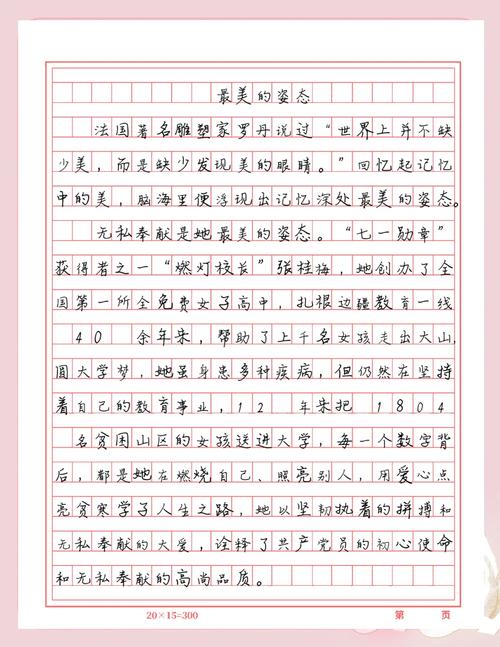 最美的姿态
法国著名雕塑家罗丹说过“世界上并不缺
少美，而是缺少发现美的眼睛。”回忆起记忆
中的美，脑海里便浮现出记忆深处最美的姿态。
无私奉献是她最美的姿态。“七一勋章”
获得者之一“燃灯校长”张桂梅，她创办了全
国第一所全免费女子高中，扎根边疆教育一线
40 余年来，帮助了上千名女孩走出大山，
圆大学梦，她虽身患多种疾病，但仍然在坚持
着自己的教育事业，12 年来把 1804
名贫困山区的女孩送进大学，每一个数字背
后，都是她在燃烧自己、照亮别人，用爱心点
亮贫寒学子人生之路，她以坚韧执着的拼搏和
无私奉献的大爱，诠释了共产党员的初心使命
和无私奉献的高尚品质。
20×15=300 第 页